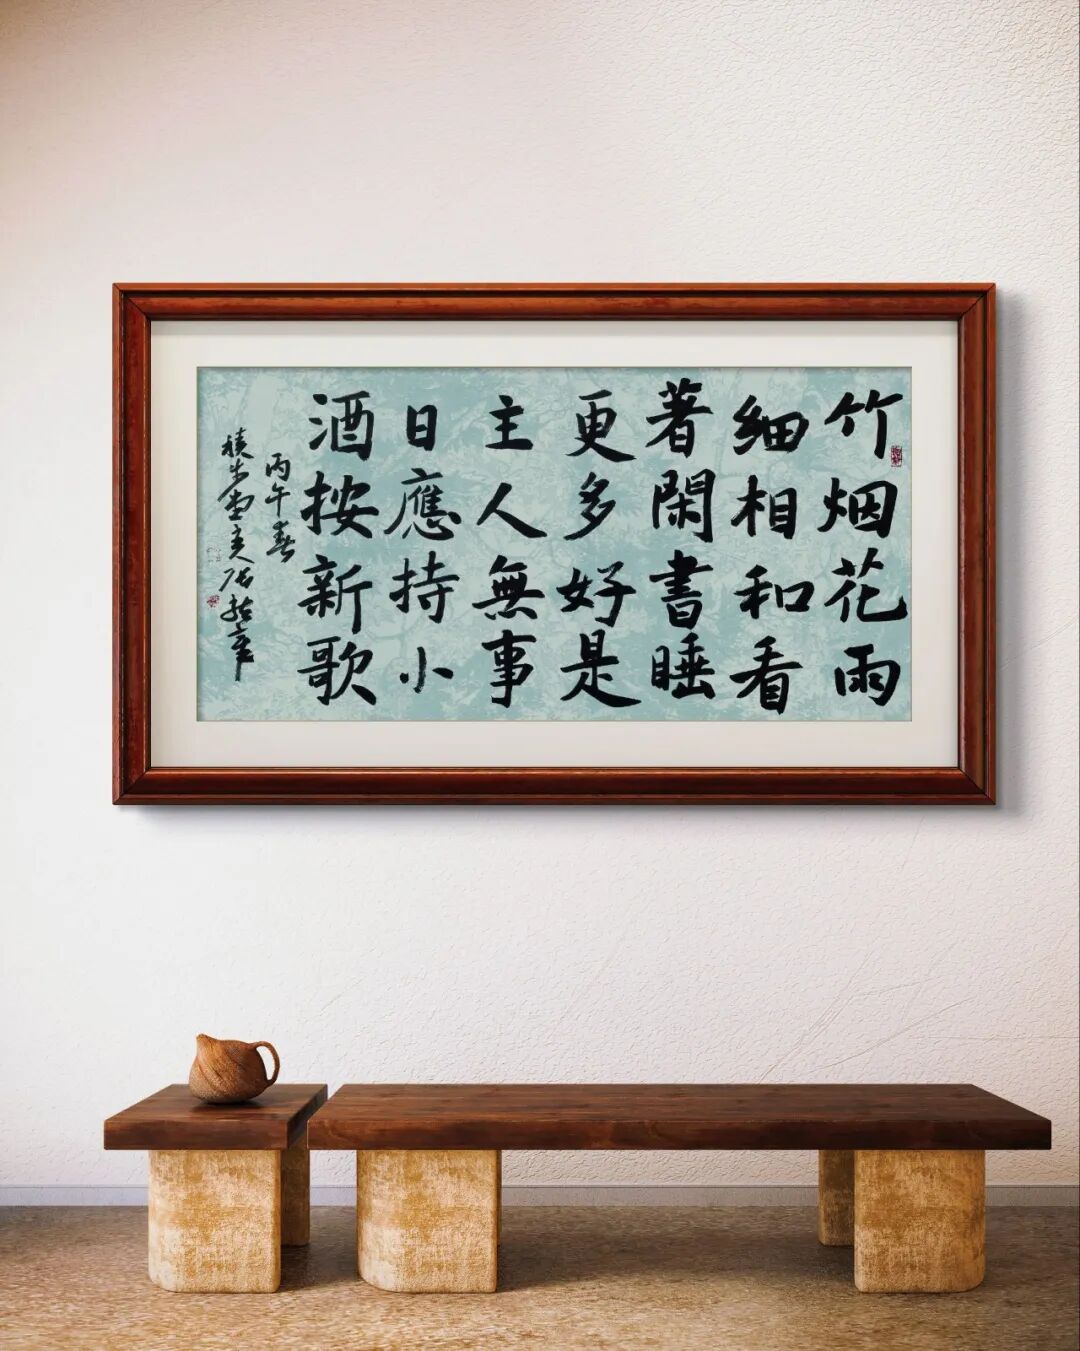 竹烟花雨
细相和看
著閑書睡
更多好是
主人無事
日應持小
酒按新歌
丙午春